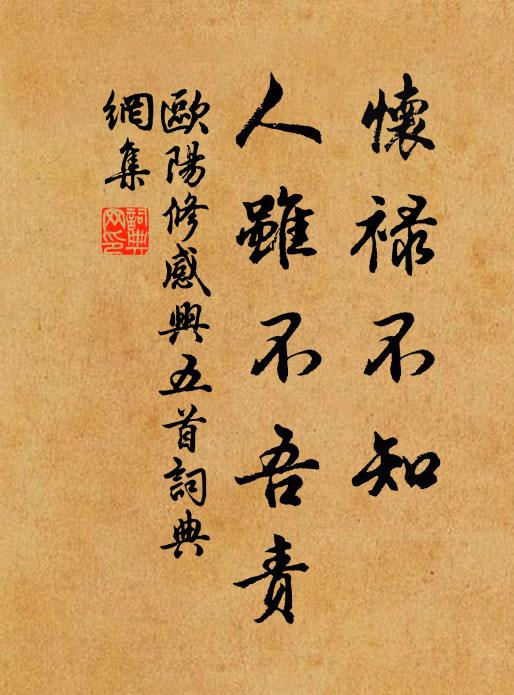 懷祿不知
人雖不吾責
歐陽修感興五首詞典
網集
詞典
网印